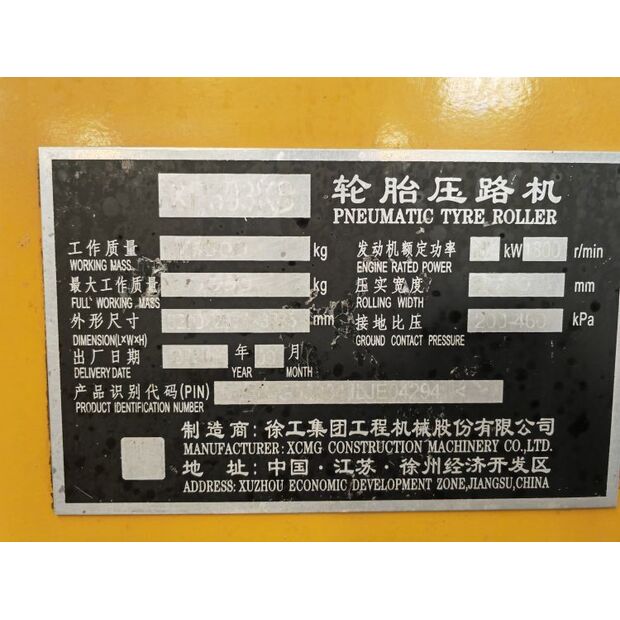 轮胎压路机
PNEUMATIC TYRE ROLLER
工作质量 kg
WORKING MASS
最大工作质量 kg
FULL WORKING MASS
外形尺寸 mm
DIMENSION(L×W×H)
出厂日期 年 月
DELIVERY DATE YEAR MONTH
发动机额定功率 kW r/min
ENGINE RATED POWER
压实宽度 mm
ROLLING WIDTH
接地比压 200-460 kPa
GROUND CONTACT PRESSURE
产品识别代码(PIN)
PRODUCT IDENTIFICATION NUMBER
制造商:徐工集团工程机械股份有限公司
MANUFACTURER: XCMG CONSTRUCTION MACHINERY CO.,LTD.
地 址:中国·江苏·徐州经济开发区
ADDRESS: XUZHOU ECONOMIC DEVELOPMENT ZONE,JIANGSU,CHINA